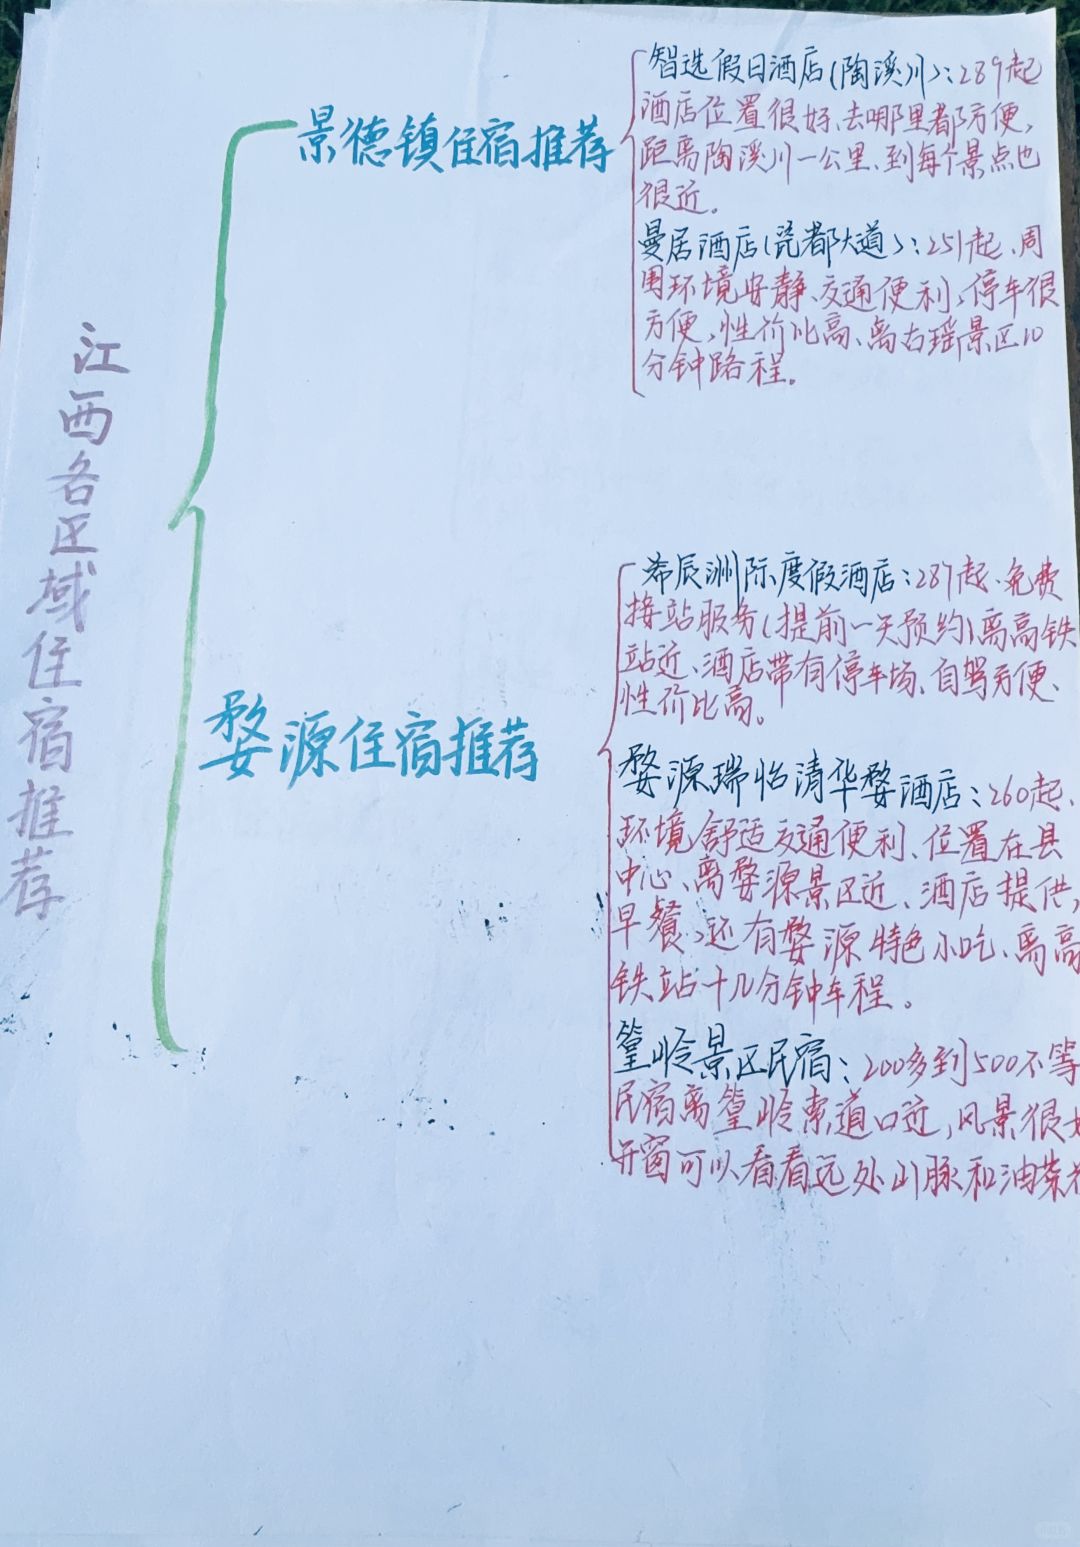 江西各区域住宿推荐
景德镇住宿推荐
智选假日酒店(陶溪川):289起
酒店位置很好、去哪里都方便,
距离陶溪川一公里、到每个景点也
很近。
曼居酒店(瓷都大道):251起、周
围环境安静、交通便利、停车很
方便、性价比高、离古瑶景区10
分钟路程。
婺源住宿推荐
希辰洲际度假酒店:287起、免费
接站服务(提前一天预约)离高铁
站近、酒店带有停车场、自驾方便、
性价比高。
婺源瑞怡清华婺酒店:260起、
环境舒适交通便利、位置在县
中心、离婺源景区近、酒店提供,
早餐,还有婺源特色小吃、离高
铁站十几分钟车程。
篁岭景区民宿:200多到500不等
民宿离篁岭索道口近,风景很
开窗可以看看远处山脉和油菜